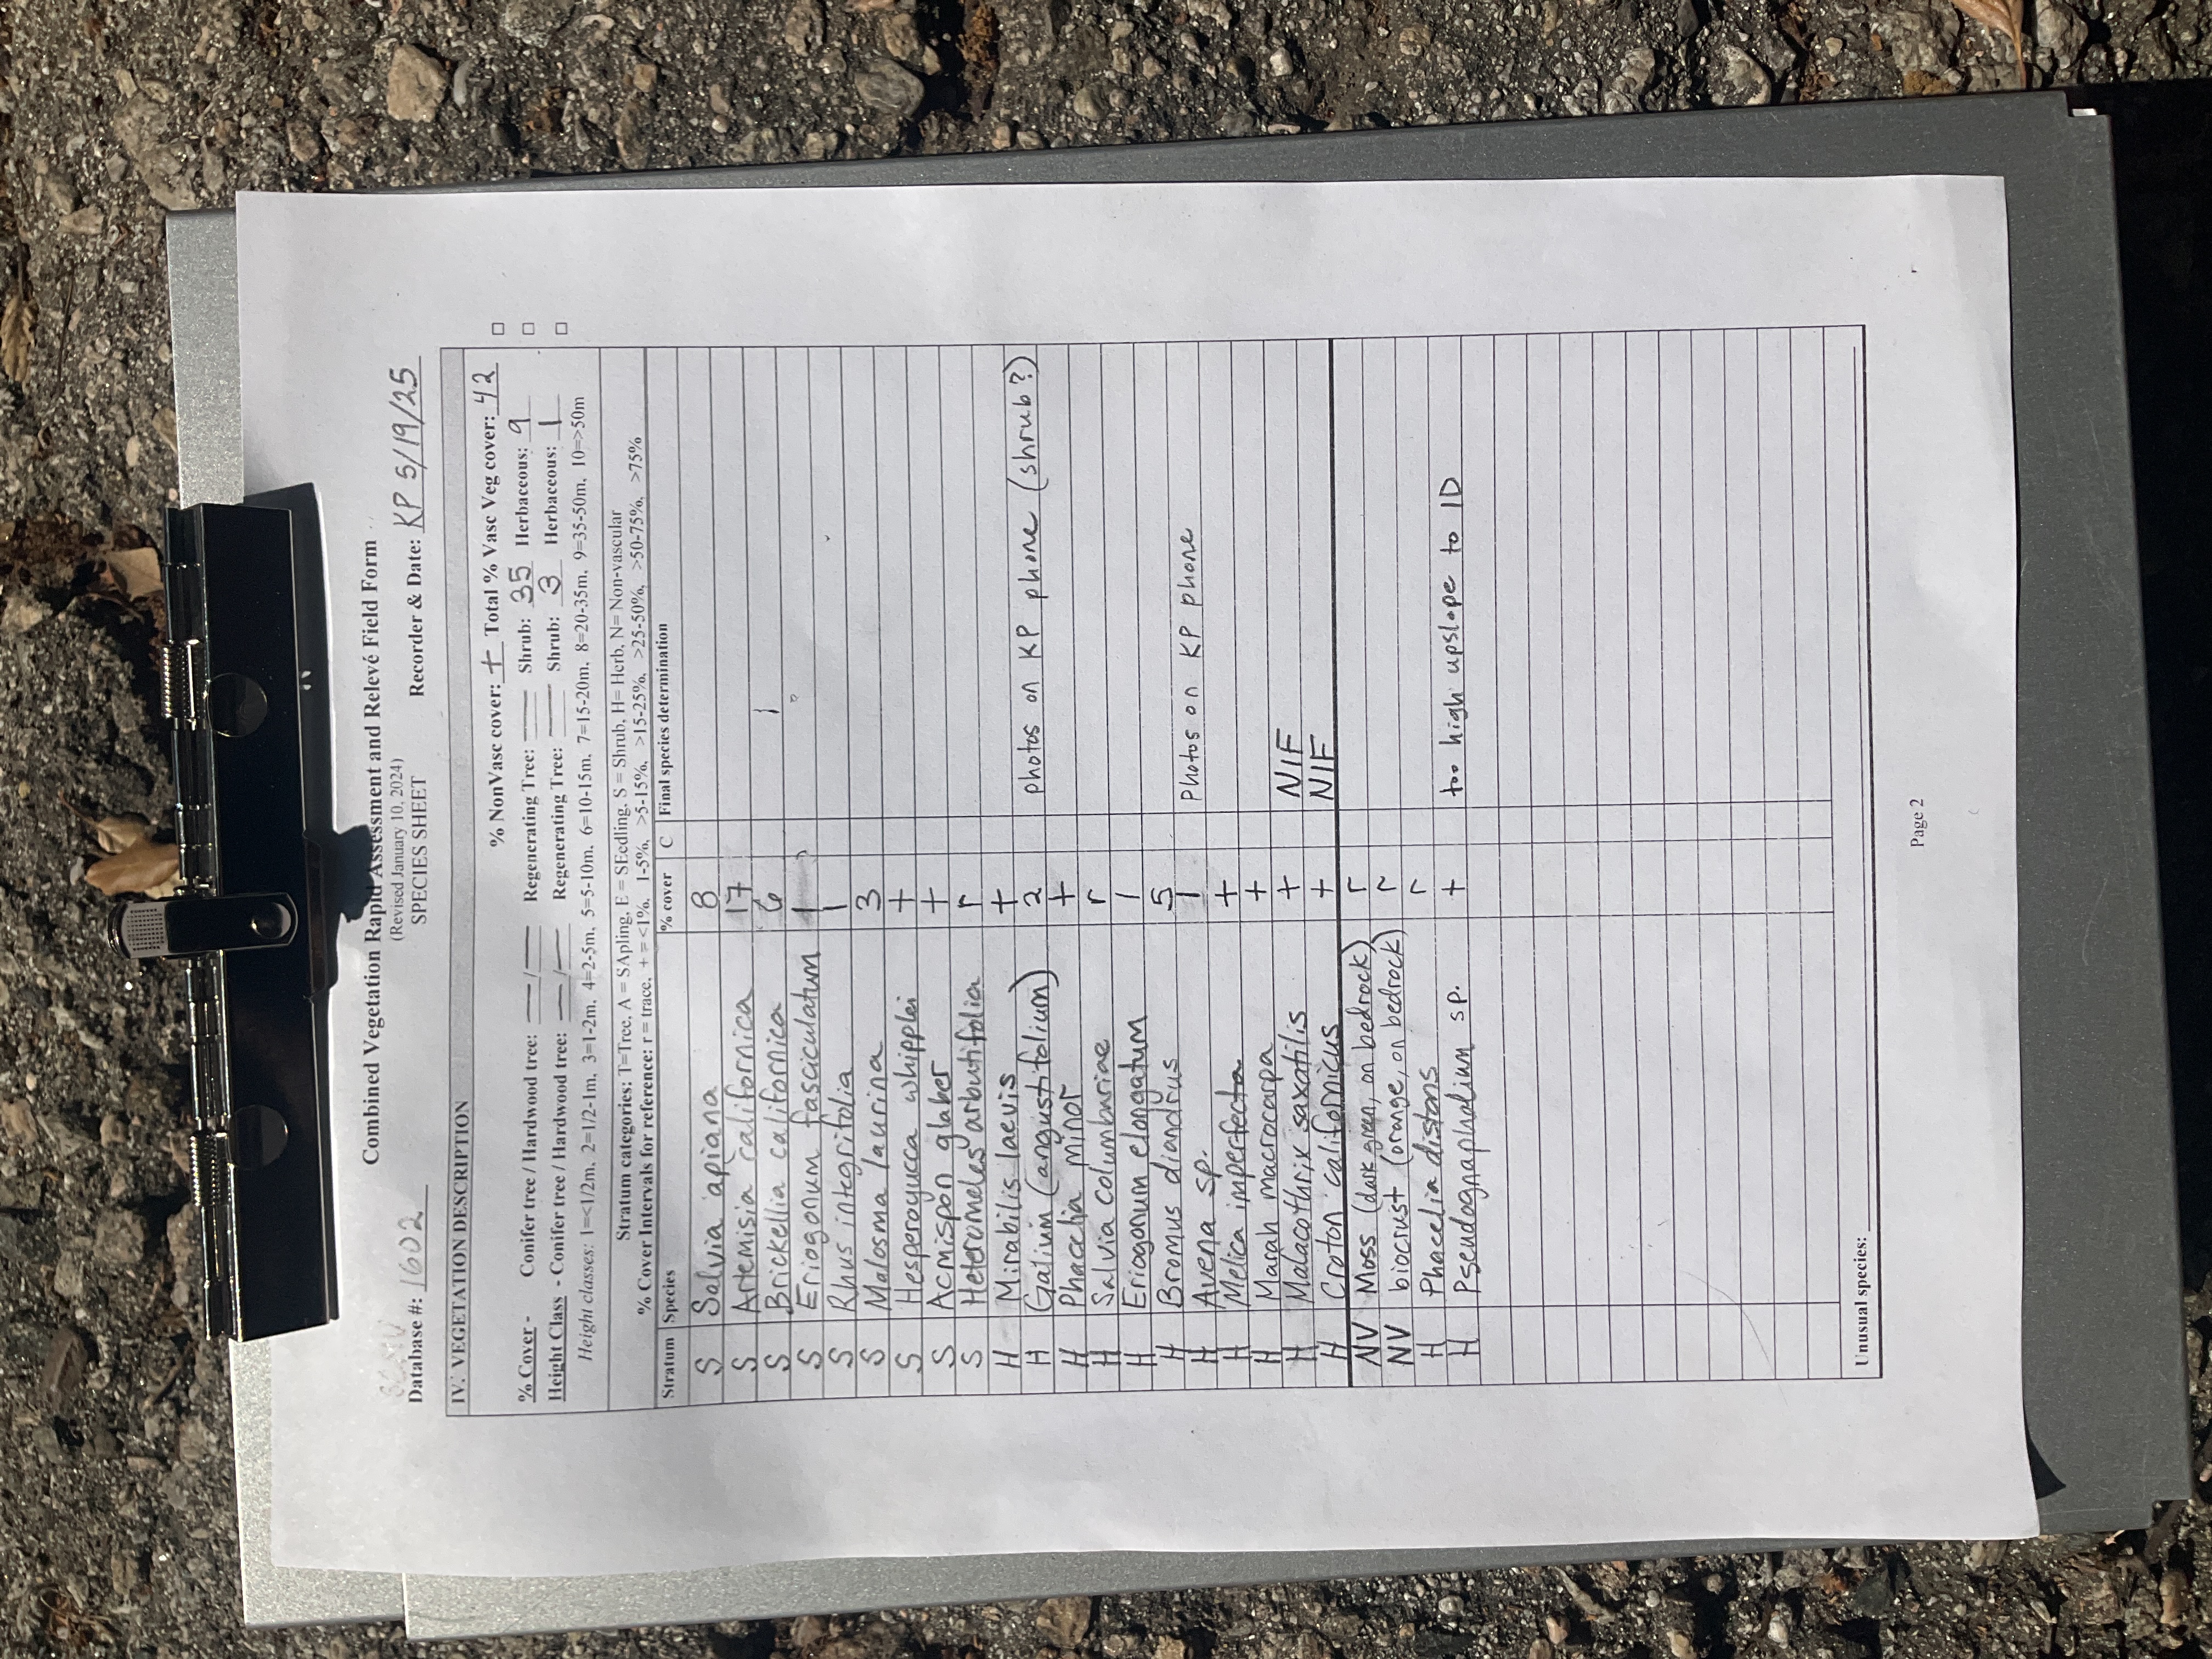 Combined Vegetation Rapid Assessment and Relevé Field Form
(Revised January 10, 2024)
SPECIES SHEET
Database #: 1602 Recorder & Date: KP 5/19/25
IV. VEGETATION DESCRIPTION
% NonVasc cover: + Total % Vasc Veg cover: 42 □
% Cover - Conifer tree / Hardwood tree: — / — Regenerating Tree: — Shrub: 35 Herbaceous: 9 □
Height Class - Conifer tree / Hardwood tree: — / — Regenerating Tree: — Shrub: 3 Herbaceous: 1 □
Height classes: 1=<1/2m, 2=1/2-1m, 3=1-2m, 4=2-5m, 5=5-10m, 6=10-15m, 7=15-20m, 8=20-35m, 9=35-50m, 10=>50m
Stratum categories: T=Tree, A = SApling, E = SEedling, S = Shrub, H= Herb, N= Non-vascular
% Cover Intervals for reference: r = trace, + = <1%, 1-5%, >5-15%, >15-25%, >25-50%, >50-75%, >75%
Stratum Species % cover C Final species determination
S Salvia apiana 8
S Artemisia californica 17
S Brickellia californica 6
S Eriogonum fasciculatum 1
S Rhus integrifolia 1
S Malosma laurina 3
S Hesperoyucca whipplei +
S Acmispon glaber +
S Heteromeles arbutifolia r
H Mirabilis laevis +
H Galium (angustifolium) 2 photos on KP phone (shrub?)
H Phacelia minor +
H Salvia columbariae r
H Eriogonum elongatum 1
H Bromus diandrus 5
H Avena sp. 1 Photos on KP phone
H Melica imperfecta +
H Marah macrocarpa +
H Malacothrix saxatilis + NIF
H Croton californicus + NIF
NV Moss (dark green, on bedrock) r
NV biocrust (orange, on bedrock) r
H Phacelia distans r
H Pseudognaphalium sp. + too high upslope to ID
Unusual species:
Page 2